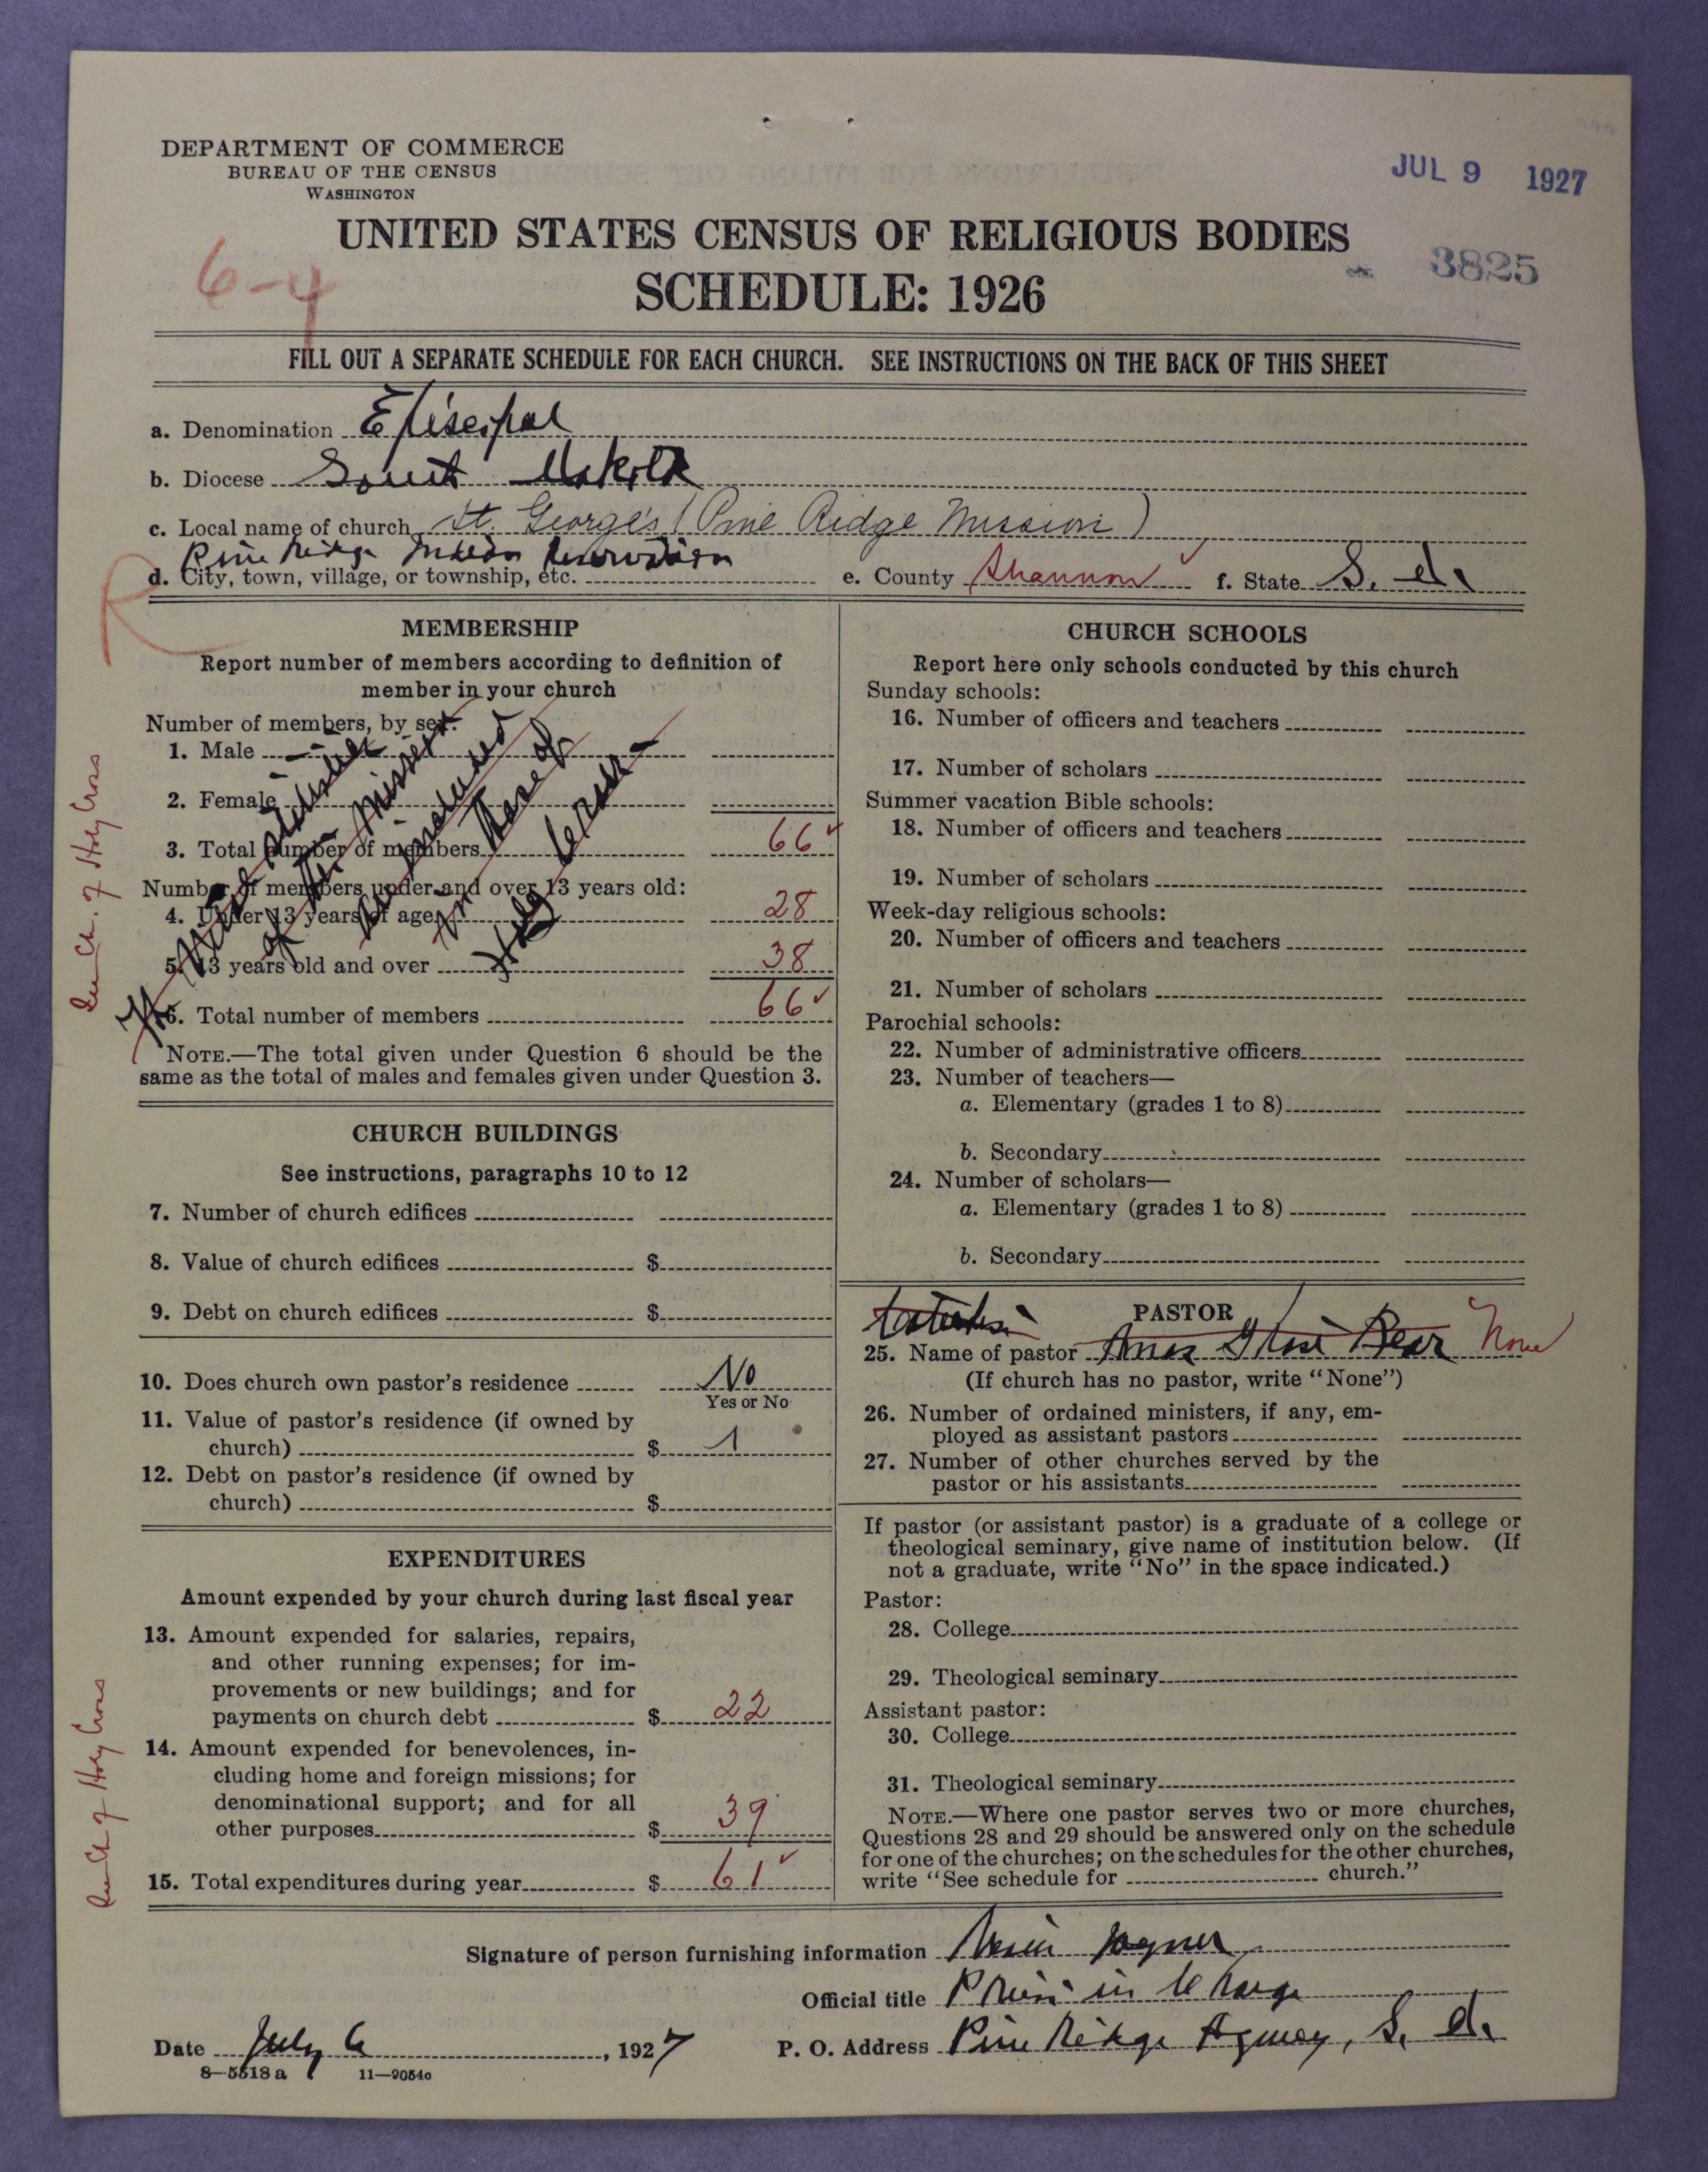 DEPARTMENT OF COMMERCE
BUREAU OF THE CENSUS
WASHINGTON
JUL 9 1927
UNITED STATES CENSUS OF RELIGIOUS BODIES
SCHEDULE: 1926
3825
6-4
FILL OUT A SEPARATE SCHEDULE FOR EACH CHURCH. SEE INSTRUCTIONS ON THE BACK OF THIS SHEET
a. Denomination Episcopal
b. Diocese South Dakota
c. Local name of church St. George's (Pine Ridge Mission)
Pine Ridge Indian Reservation
d. City, town, village, or township, etc. e. County Shannon f. State S. d.
MEMBERSHIP
Report number of members according to definition of
member in your church
Number of members, by sex:
1. Male
2. Female
3. Total number of members 66
Number of members under and over 13 years old:
4. Under 13 years of age 28
5. 13 years old and over 38
6. Total number of members 66
The
of this Mission
are included
in those of
Holy Cross
NOTE.—The total given under Question 6 should be the
same as the total of males and females given under Question 3.
Ch. of Holy Cross
CHURCH BUILDINGS
See instructions, paragraphs 10 to 12
7. Number of church edifices
8. Value of church edifices $
9. Debt on church edifices $
10. Does church own pastor's residence No
Yes or No
11. Value of pastor's residence (if owned by
church) $
12. Debt on pastor's residence (if owned by
church) $
EXPENDITURES
Amount expended by your church during last fiscal year
13. Amount expended for salaries, repairs,
and other running expenses; for im-
provements or new buildings; and for
payments on church debt $ 22
14. Amount expended for benevolences, in-
cluding home and foreign missions; for
denominational support; and for all
other purposes $ 39
15. Total expenditures during year $ 61
Ch of Holy Cross
CHURCH SCHOOLS
Report here only schools conducted by this church
Sunday schools:
16. Number of officers and teachers
17. Number of scholars
Summer vacation Bible schools:
18. Number of officers and teachers
19. Number of scholars
Week-day religious schools:
20. Number of officers and teachers
21. Number of scholars
Parochial schools:
22. Number of administrative officers
23. Number of teachers—
a. Elementary (grades 1 to 8)
b. Secondary
24. Number of scholars—
a. Elementary (grades 1 to 8)
b. Secondary
PASTOR
25. Name of pastor Amos Bear None
(If church has no pastor, write "None")
26. Number of ordained ministers, if any, em-
ployed as assistant pastors
27. Number of other churches served by the
pastor or his assistants
If pastor (or assistant pastor) is a graduate of a college or
theological seminary, give name of institution below. (If
not a graduate, write "No" in the space indicated.)
Pastor:
28. College
29. Theological seminary
Assistant pastor:
30. College
31. Theological seminary
NOTE.—Where one pastor serves two or more churches,
Questions 28 and 29 should be answered only on the schedule
for one of the churches; on the schedules for the other churches,
write "See schedule for church."
Signature of person furnishing information Joyner
Official title Priest in Charge
Date July 6, 1927 P. O. Address Pine Ridge Agency, S. d.
8—5518 a 11—9054c